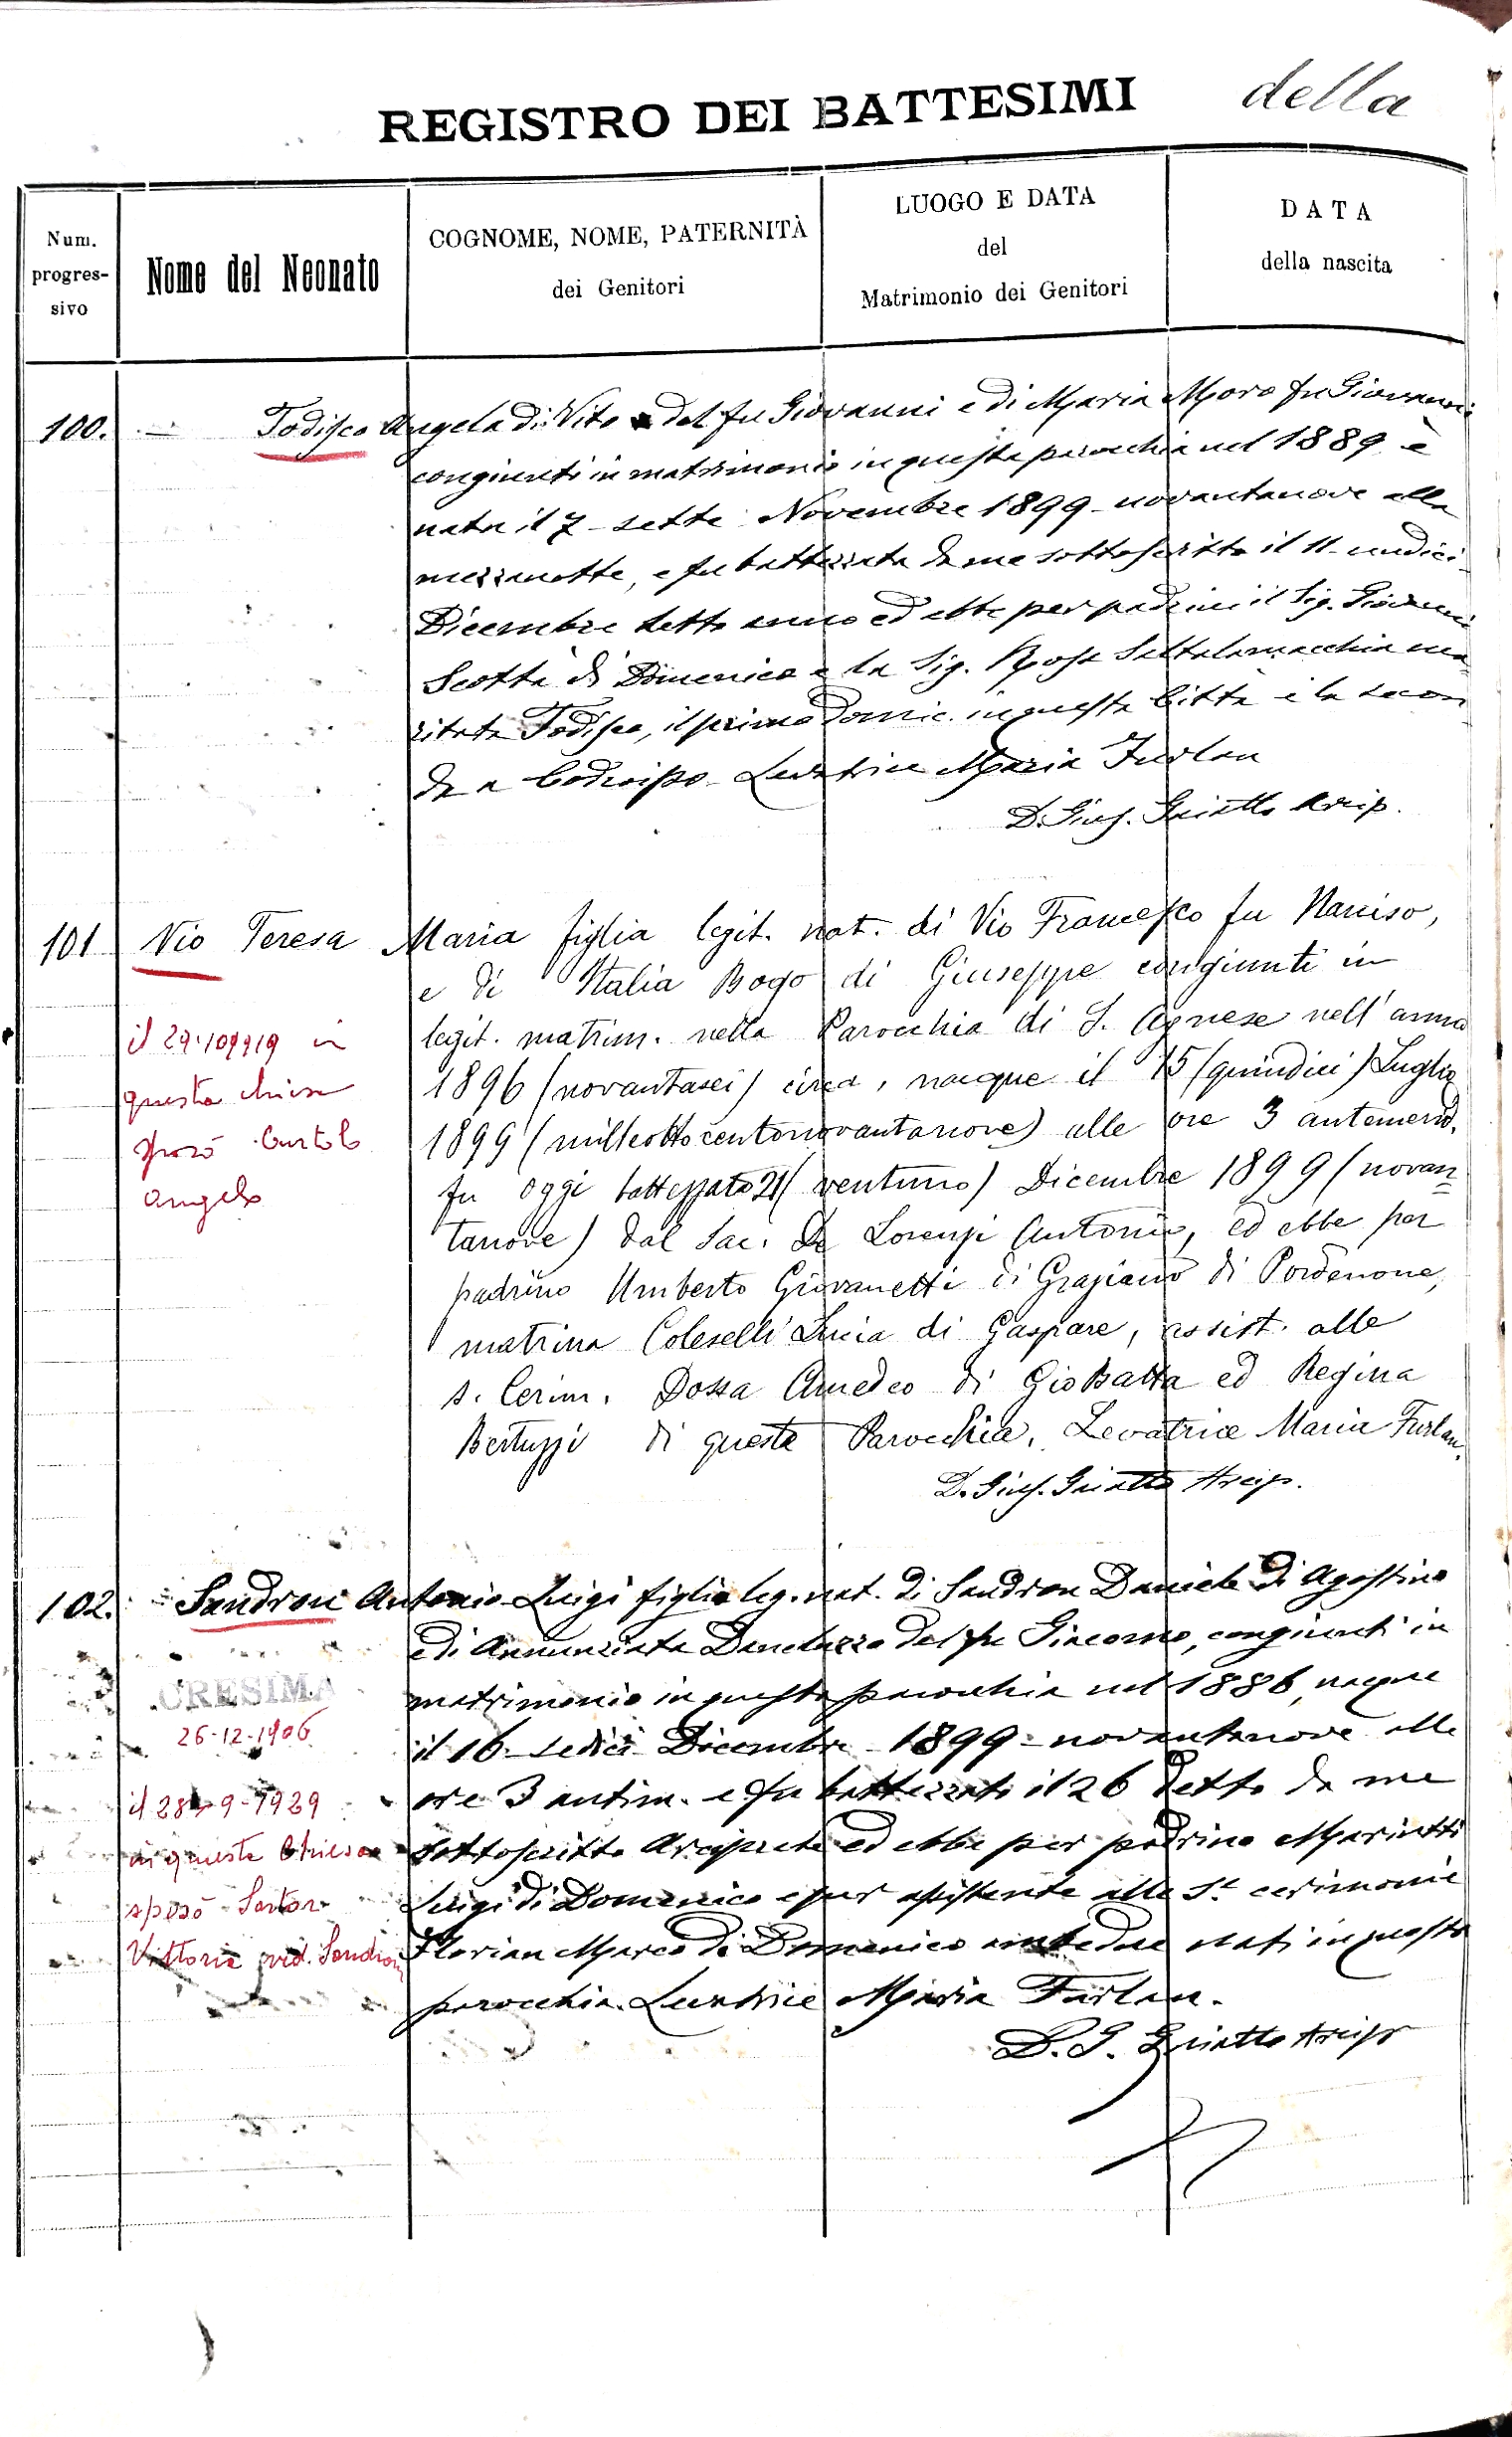 REGISTRO DEI BATTESIMI della
Num.
progres-
sivo
Nome del Neonato
COGNOME, NOME, PATERNITÀ
dei Genitori
LUOGO E DATA
del
Matrimonio dei Genitori
DATA
della nascita
100. — Todisco Angela di Vito del fu Giovanni e di Maria Moro fu Giovanni
congiunti in matrimonio in questa parocchia nel 1889 è
nata il 7 - sette Novembre 1899 - novantanove alla
mezzanotte, e fu battezzata da me sottoscritto il 11 - undici
Dicembre detto anno ed ebbe per padrini il Sig. Giovanni
Scotta di Domenico e la Sig. Rosa ma
ritata Todisco, il primo domic. in questa Città e la secon
da a Codroipo - Levatrice Maria Furlan
D. Gius. Arcip.
101 Vio Teresa Maria figlia legit. nat. di Vio Francesco fu Narciso,
e di Italia Bogo di Giuseppe congiunti in
legit. matrim. nella Parocchia di S. Agnese nell'anno
1896 (novantasei) circa, nacque il 15 (quindici) Luglio
1899 (milleottocentonovantanove) alle ore 3 antemerid.
fu oggi battezzata 21 (ventuno) Dicembre 1899 (novan=
tanove) dal Sac. De Lorenzi Antonio, ed ebbe per
padrino Umberto Giovanetti di Graziano di Pordenone,
matrina Coleselli Lucia di Gaspare, assist. alle
s. Cerim. Dossa Amedeo di GioBatta ed Regina
Bertuzzi di questa Parocchia. Levatrice Maria Furlan.
D. Gius. Arcip.
in
questa chiesa
sposò
Angelo
102. Sandron Antonio Luigi figlio leg. nat. di Sandron Daniele di Agostino
e di Annunziata del fu Giacomo, congiunti in
matrimonio in questa parocchia nel 1886, nacque
il 16 - sedici Dicembre 1899 - novantanove alle
ore 3 antim. e fu battezzato il 26 detto da me
sottoscritto Arciprete ed ebbe per padrino Mariutti
Luigi di Domenico e per assistente alle S.e cerimonie
Florian Marco di Domenico ambedue nati in questa
parocchia. Levatrice Maria Furlan.
D. G. Arcipr
CRESIMA
26-12-1906
in questa Chiesa
sposò Sartor
Vittoria ved. Sandron